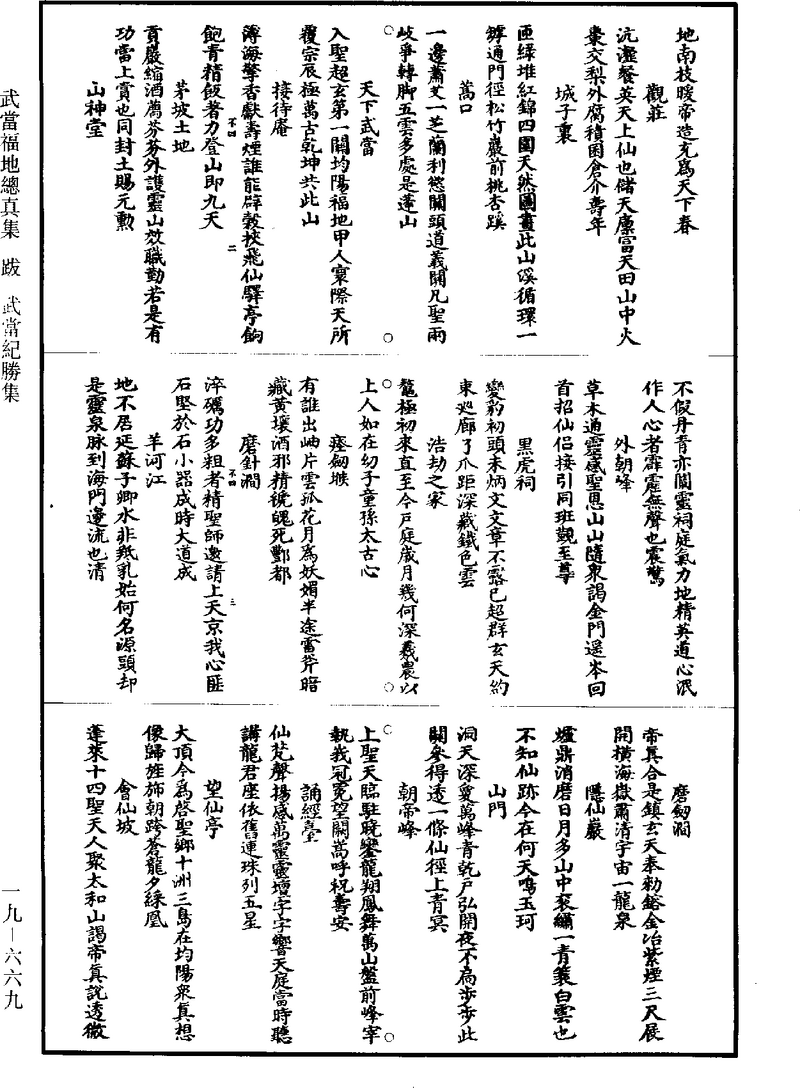 地南枝暖帝造充為天下春
觀莊
沆瀣餐英天上仙也儲天廩富天田山中火
棗交梨外腐積囷倉介壽年
城子裏
匝綠堆紅錦四圍天然圖畫此山溪循環一
罅通門徑松竹巖前桃杏蹊
蒿口
一邊蕭艾一芝蘭利慾關頭道義關凡聖兩
歧爭轉脚五雲多處是蓬山
天下武當
入聖超玄第一關均陽福地甲人寰際天所
覆宗辰極萬古乾坤共此山
接待庵
溥海擎香獻壽煙誰能辟穀挾飛仙驛亭餉
飽青精飯著力登山即九天
茅坡土地
貢嚴縮酒薦芬芬外護靈山效職勤若是有
功當上賞也同封土賜元勳
山神堂
不假丹青亦閟靈祠庭氣力地精英道心泯
作人心者霹靂無聲也震驚
外朝峰
草木通靈感聖恩山山隨衆謁金門遥岑回
首招仙侣接引同班觀至尊
黑虎祠
變豹初頭未炳文文章不露已超群玄天約
束巡廊了爪距深藏鐵色雲
浩劫之家
鼇極初來直至今戶庭歲月幾何深羲農以
上人如在幼子童孫太古心
瘞劒墩
有誰出岫片雲孤花月為妖媚半途雷斧暗
藏黄壤酒邪精褫魄死酆都
磨針澗
淬礪功多粗者精聖師邀請上天京我心匪
石堅於石小器成時大道成
羊河江
地不居延蘇子卿水非羝乳始何名源頭却
是靈泉脉到海門邊流也清
磨劒澗
帝真合是鎮玄天奉勑鎔金冶紫煙三尺展
開橫海嶽肅清宇宙一龍泉
隱仙巖
爐鼎消磨日月多山中衮繡一青蓑白雲也
不知仙跡今在何天鳴玉珂
山門
洞天深窅萬峰青乾戶弘開夜不扃步步此
關參得透一條仙徑上青冥
朝帝峰
上聖天臨駐曉鑾龍翔鳳舞萬山盤前峰宰
執峩冠冕望闕嵩呼祝壽安
誦經臺
仙梵聲揚感萬靈靈壇字字響天庭當時聽
講龍君座依舊連珠列五星
望仙亭
大頂今為啓聖鄉十洲三島在均陽衆真想
像歸旌斾朝跨蒼龍夕綵凰
會仙坡
蓬萊十四聖天人聚太和山謁帝真說透微
武當福地總真集 跋 武當紀勝集
一九—六六九